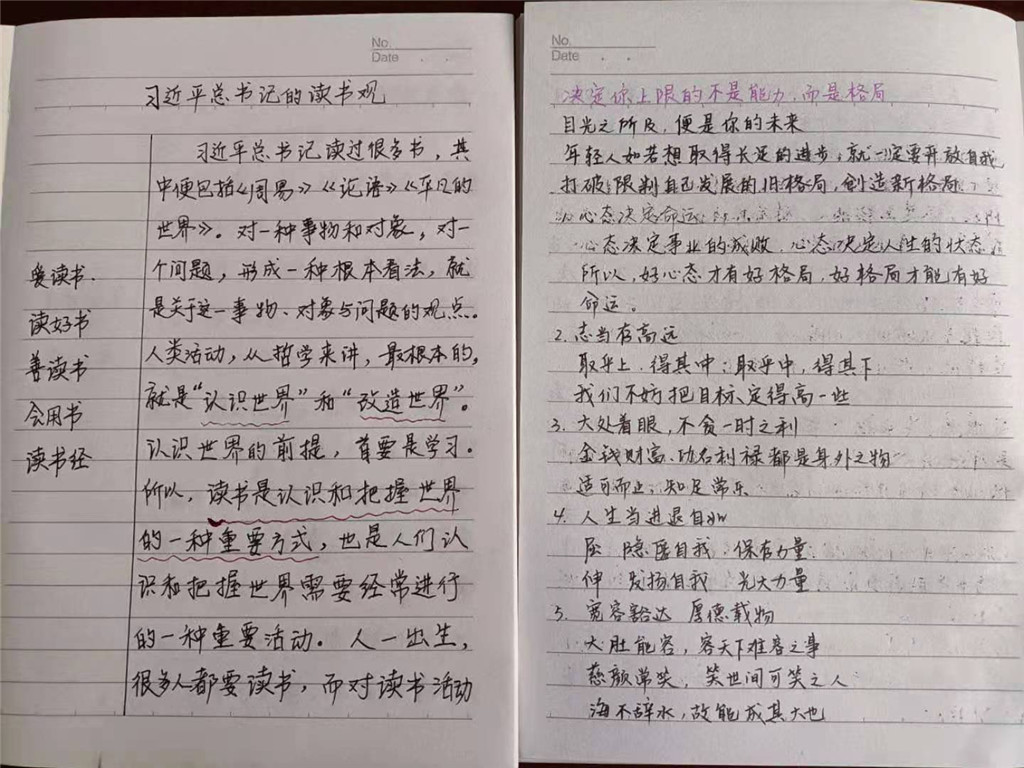 No.
Date
习近平总书记的读书观
习近平总书记读过很多书，其
中便包括《周易》《论语》《平凡的
世界》。对一种事物和对象，对一
个问题，形成一种根本看法，就
是关于这一事物、对象与问题的观点。
人类活动，从哲学来讲，最根本的，
就是“认识世界”和“改造世界”。
认识世界的前提，首要是学习。
所以，读书是认识和把握世界
的一种重要方式，也是人们认
识和把握世界需要经常进行
的一种重要活动。人一出生，
很多人都要读书，而对读书活动
爱读书.
读好书
善读书
会用书
读书经
No.
Date
决定你上限的不是能力，而是格局
目光之所及，便是你的未来
年轻人如若想取得长足的进步，就一定要开放自我
打破限制自己发展的旧格局，创造新格局
心态决定命运
心态决定事业的成败，心态决定人生的状态
所以，好心态才有好格局，好格局才能有好
命运。
2. 志当有高远
取乎上，得其中；取乎中，得其下
我们不妨把目标定得高一些
3. 大处着眼，不贪一时之利
金钱财富、功名利禄都是身外之物
适可而止，知足常乐
4. 人生当进退自如
屈 隐匿自我 保存力量
伸 发扬自我 光大力量
5. 宽容豁达 厚德载物
大肚能容，容天下难容之事
慈颜常笑，笑世间可笑之人
海不辞水，故能成其大也